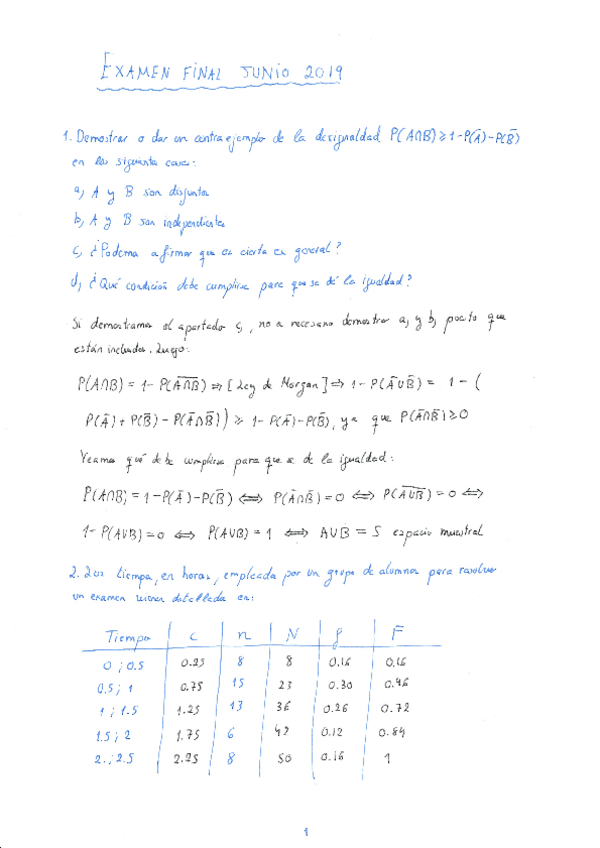 EXAMEN FINAL JUNIO 2019
1. Demostrar o dar un contraejemplo de la desigualdad P(A∩B) ≥ 1-P(Ā)-P(B̄)
en los siguientes casos:
a) A y B son disjuntos
b) A y B son independientes
c) ¿Podemos afirmar que es cierta en general?
d) ¿Qué condición debe cumplirse para que se dé la igualdad?
Si demostramos el apartado c, no es necesario demostrar a) y b) puesto que
están incluidos. Luego:
P(A∩B) = 1- P(A̅∩̅B̅) ⇒ [Ley de Morgan] ⇒ 1- P(Ā∪B̄) = 1 - (
P(Ā) + P(B̄) - P(Ā∩B̄)) ≥ 1- P(Ā)-P(B̄), ya que P(Ā∩B̄) ≥ 0
Veamos qué debe cumplirse para que se de la igualdad:
P(A∩B) = 1-P(Ā)-P(B̄) ⟺ P(Ā∩B̄) = 0 ⟺ P(A̅∪̅B̅) = 0 ⟺
1- P(A∪B) = 0 ⟺ P(A∪B) = 1 ⟺ A∪B = S espacio muestral
2. Los tiempos, en horas, empleados por un grupo de alumnos para resolver
un examen vienen detallados en:
Tiempo c n N f F
0 ; 0.5 0.25 8 8 0.16 0.16
0.5 ; 1 0.75 15 23 0.30 0.46
1 ; 1.5 1.25 13 36 0.26 0.72
1.5 ; 2 1.75 6 42 0.12 0.84
2. ; 2.5 2.25 8 50 0.16 1
1